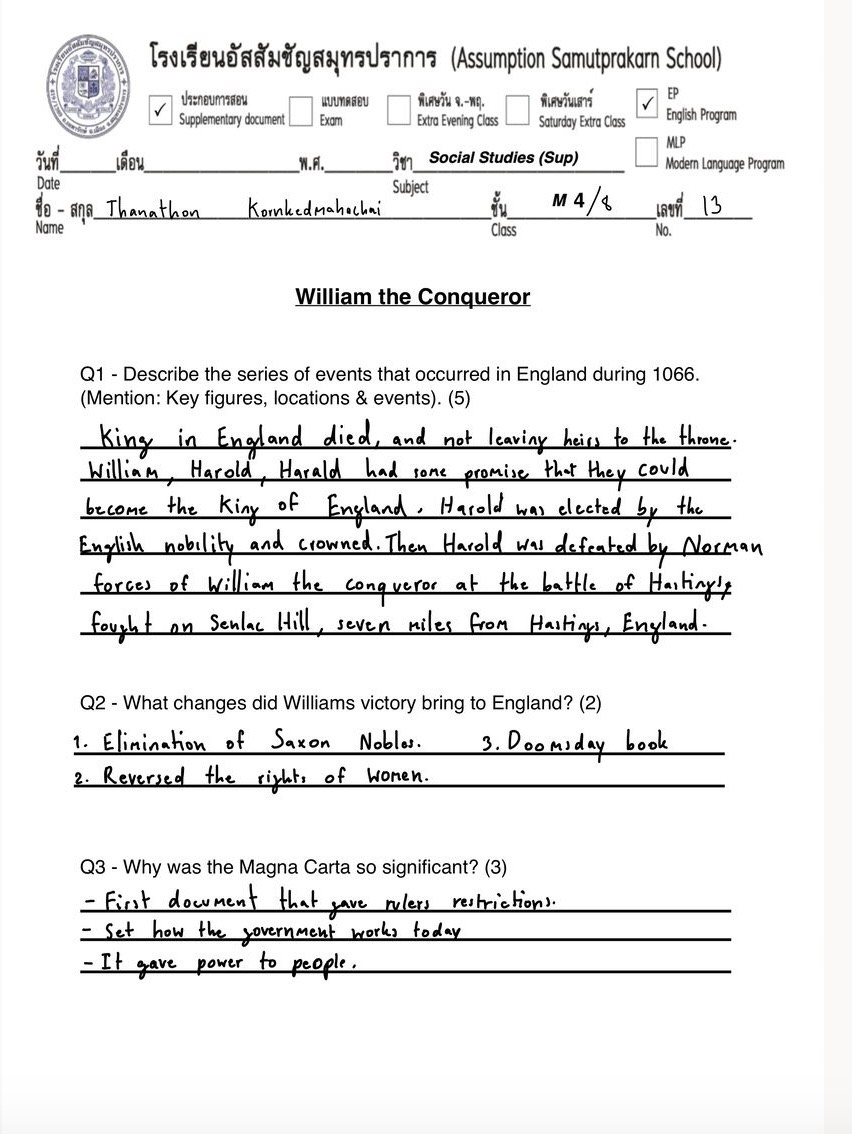 โรงเรียนอัสสัมชัญสมุทรปราการ (Assumption Samutprakarn School)
✓ ประกอบการสอน แบบทดสอบ พิเศษวัน จ.-พฤ. พิเศษวันเสาร์ ✓ EP
Supplementary document Exam Extra Evening Class Saturday Extra Class English Program
MLP
Modern Language Program
วันที่ เดือน พ.ศ. วิชา Social Studies (Sup)
Date Subject
ชื่อ - สกุล Thanathon Kornkedmahachai ชั้น M 4/8 เลขที่ 13
Name Class No.
William the Conqueror
Q1 - Describe the series of events that occurred in England during 1066.
(Mention: Key figures, locations & events). (5)
King in England died, and not leaving heirs to the throne.
William, Harold, Harald had some promise that they could
become the King of England. Harold was elected by the
English nobility and crowned. Then Harold was defeated by Norman
forces of William the conqueror at the battle of Hastings,
fought on Senlac Hill, seven miles from Hastings, England.
Q2 - What changes did Williams victory bring to England? (2)
1. Elimination of Saxon Nobles. 3. Doomsday book
2. Reversed the rights of women.
Q3 - Why was the Magna Carta so significant? (3)
- First document that gave rulers restrictions.
- Set how the government works today
- It gave power to people.